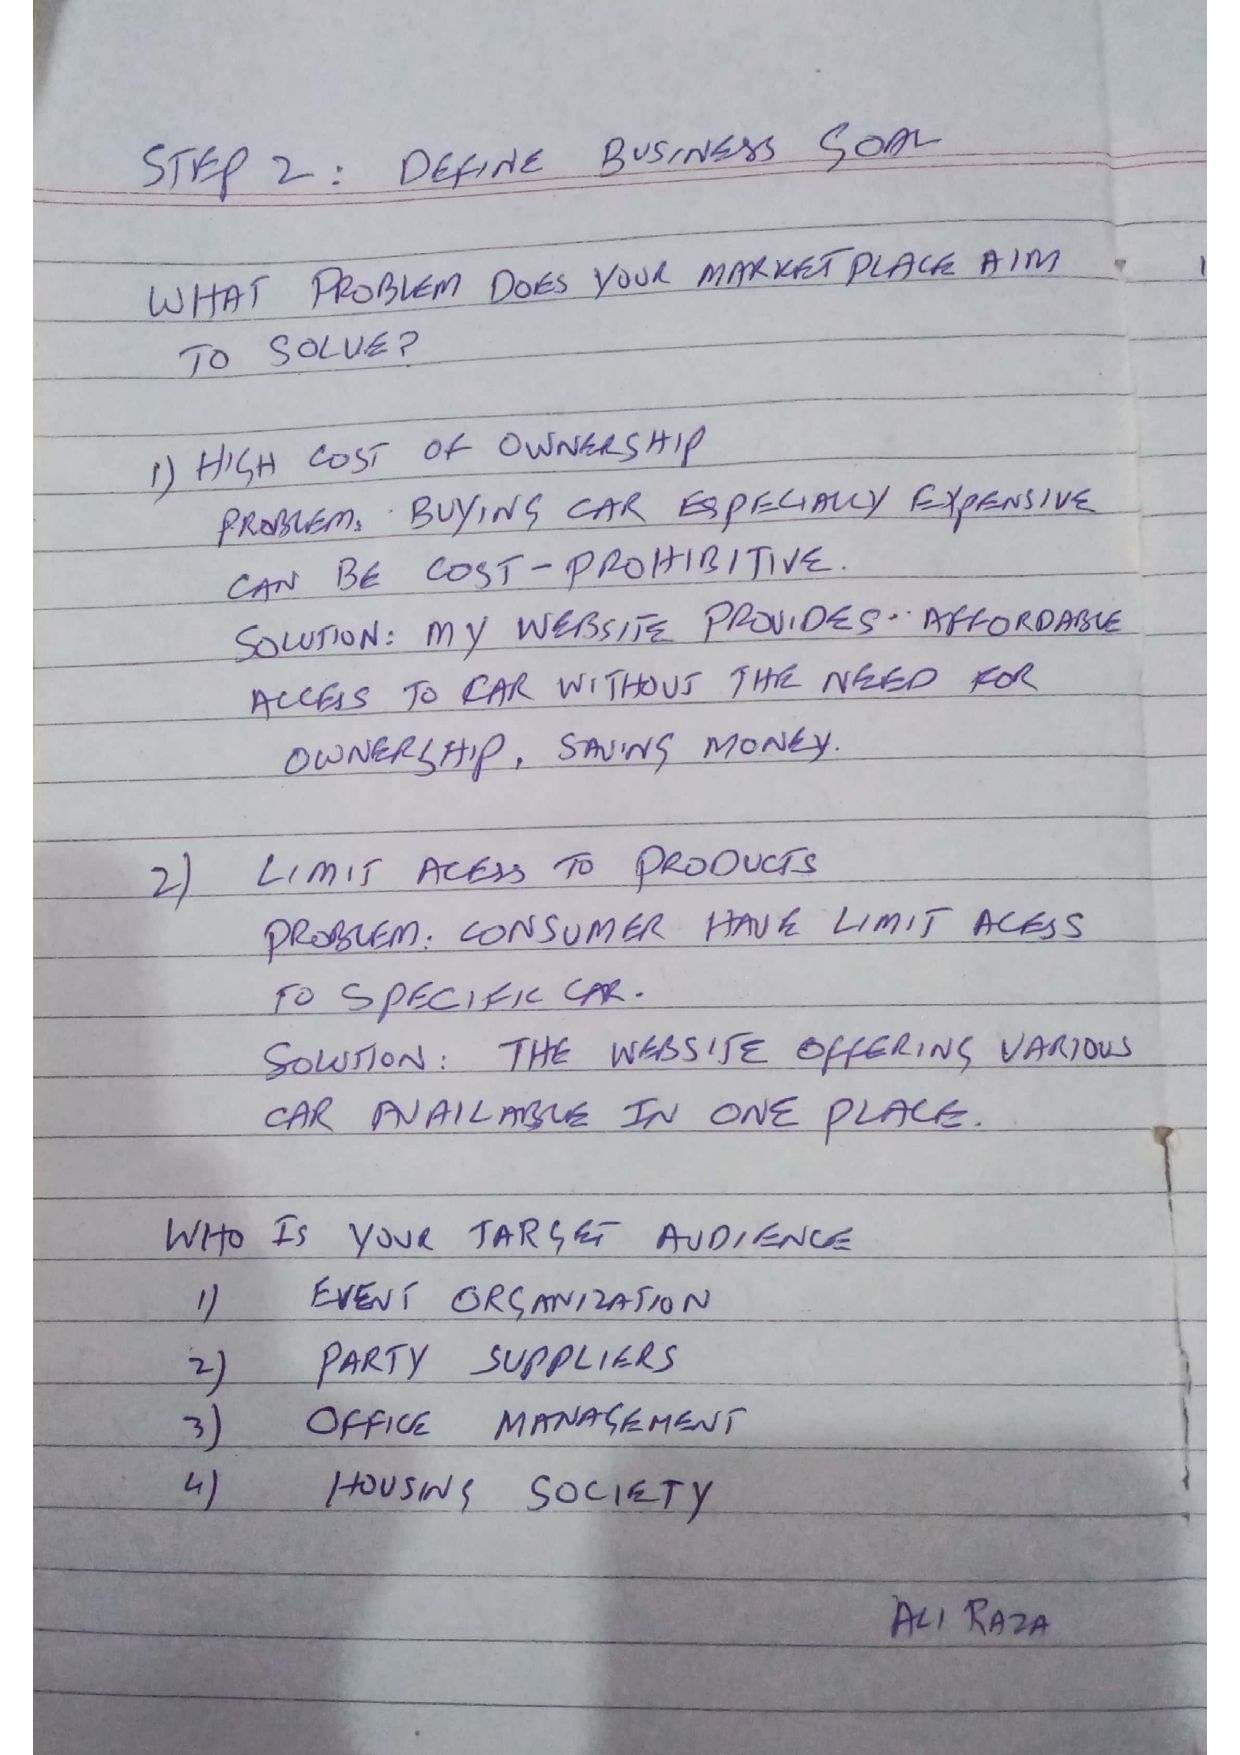 STEP 2: DEFINE BUSINESS GOAL
WHAT PROBLEM DOES YOUR MARKETPLACE AIM
TO SOLVE?
1) HIGH COST OF OWNERSHIP
PROBLEM: BUYING CAR ESPECIALLY EXPENSIVE
CAN BE COST-PROHIBITIVE.
SOLUTION: MY WEBSITE PROVIDES AFFORDABLE
ACCESS TO CAR WITHOUT THE NEED FOR
OWNERSHIP, SAVING MONEY.
2) LIMIT ACESS TO PRODUCTS
PROBLEM: CONSUMER HAVE LIMIT ACESS
TO SPECIFIC CAR.
SOLUTION: THE WEBSITE OFFERING VARIOUS
CAR AVAILABLE IN ONE PLACE.
WHO IS YOUR TARGET AUDIENCE
1) EVENT ORGANIZATION
2) PARTY SUPPLIERS
3) OFFICE MANAGEMENT
4) HOUSING SOCIETY
ALI RAZA